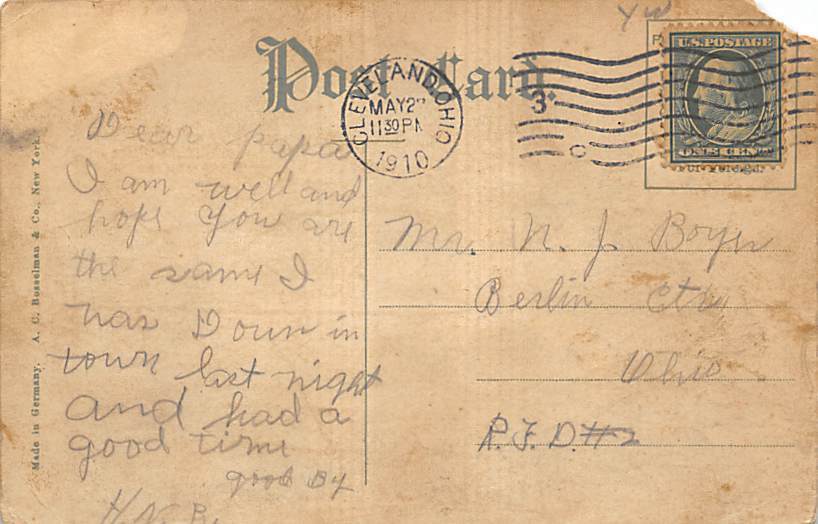 Post Card
CLEVELAND, OHIO
MAY 2
11 30 PM
1910
3
U.S. POSTAGE
ONE CENT
or Foreign.
Made in Germany. A. C. Bosselman & Co., New York.
Dear papa
I am well and
hope You are
the same I
was Down in
town last night
and had a
good time
good By
H. N. B
Mr. N. J. Boyer
Berlin Ctr
Ohio
R. F. D. #2